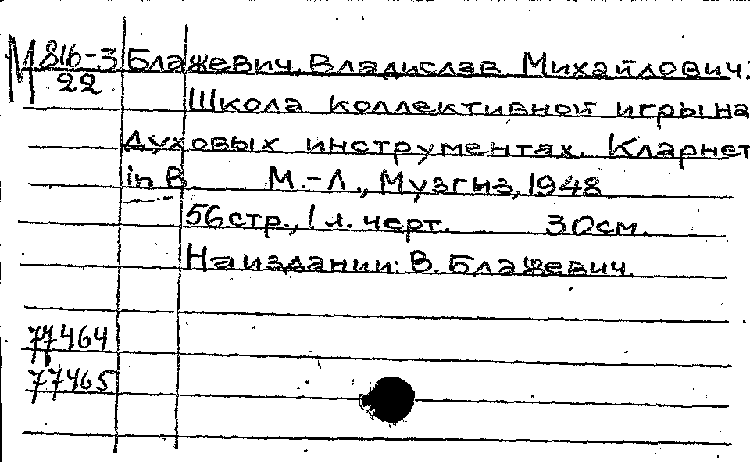 М 816-3 Блажевич, Владислав Михайлович.
22 Школа коллективной игры на
духовых инструментах. Кларнет
in B М.-Л., Музгиз, 1948
56 стр., 1 л. черт. 30 см.
На издании: В. Блажевич.
77464
77465